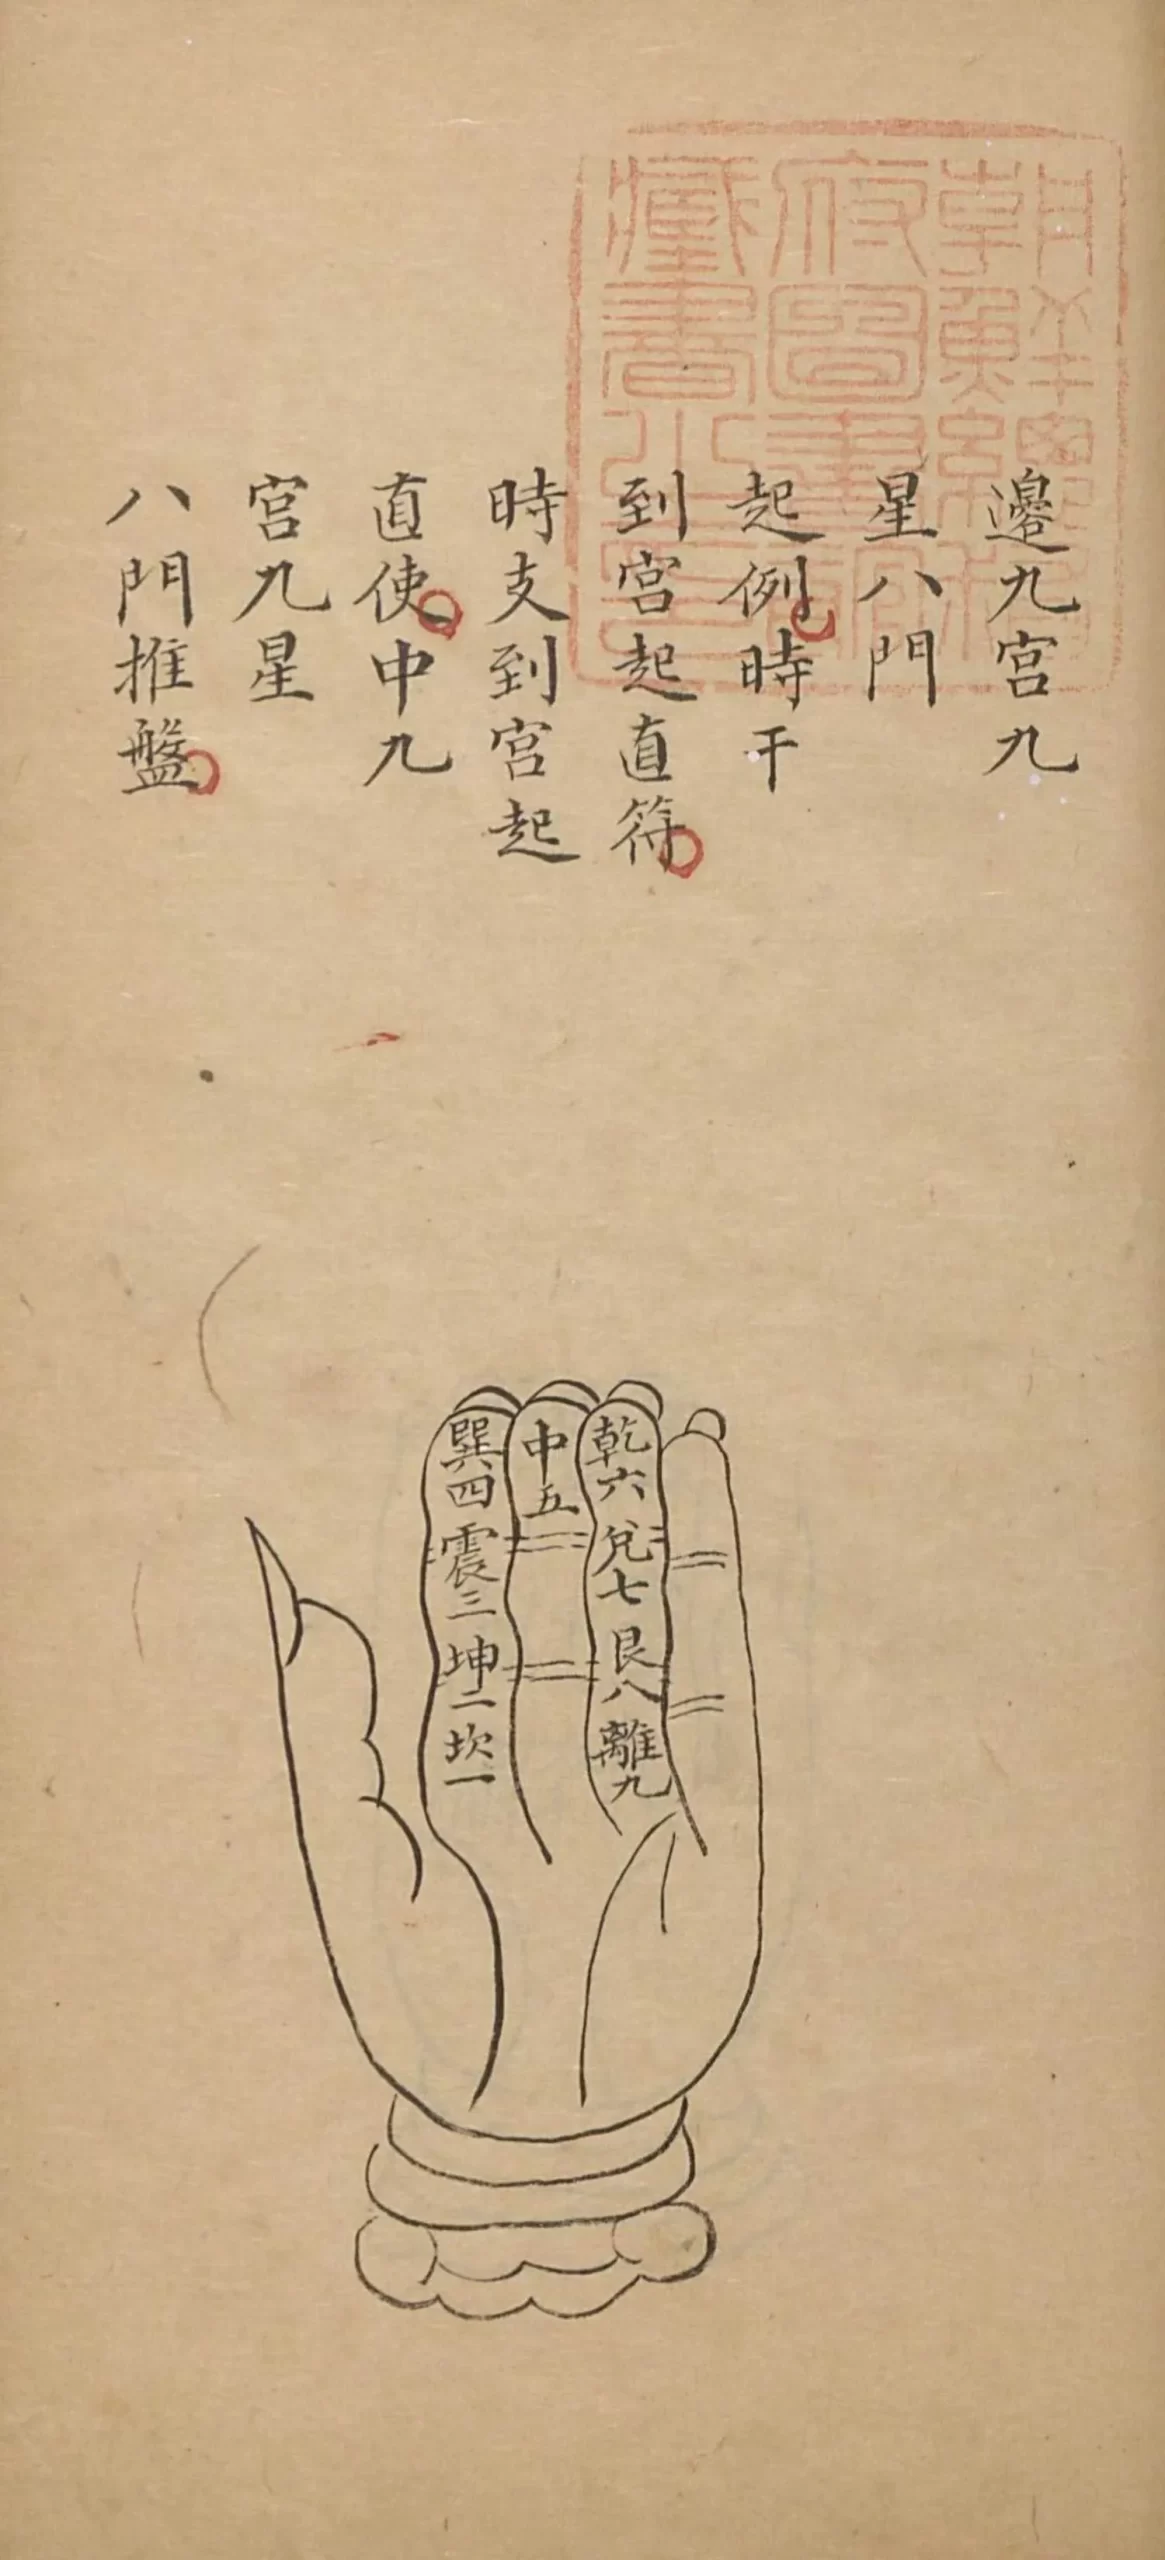 邊九宮九
星八門
起例時干
到宮起直符
時支到宮起
直使中九
宮九星
八門推盤
朝鮮總
督府圖書
館藏書之
印
巽四震三坤二坎一
中五
乾六兌七艮八離九